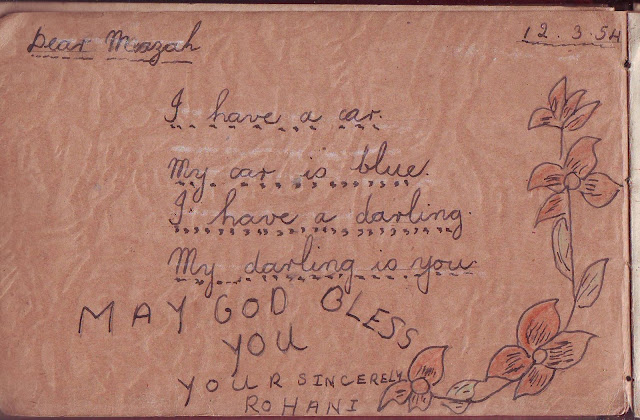 Dear Mazah
12.3.54
I have a car.
My car is blue.
I have a darling.
My darling is you.
MAY GOD BLESS
YOU
YOUR SINCERELY
ROHANI